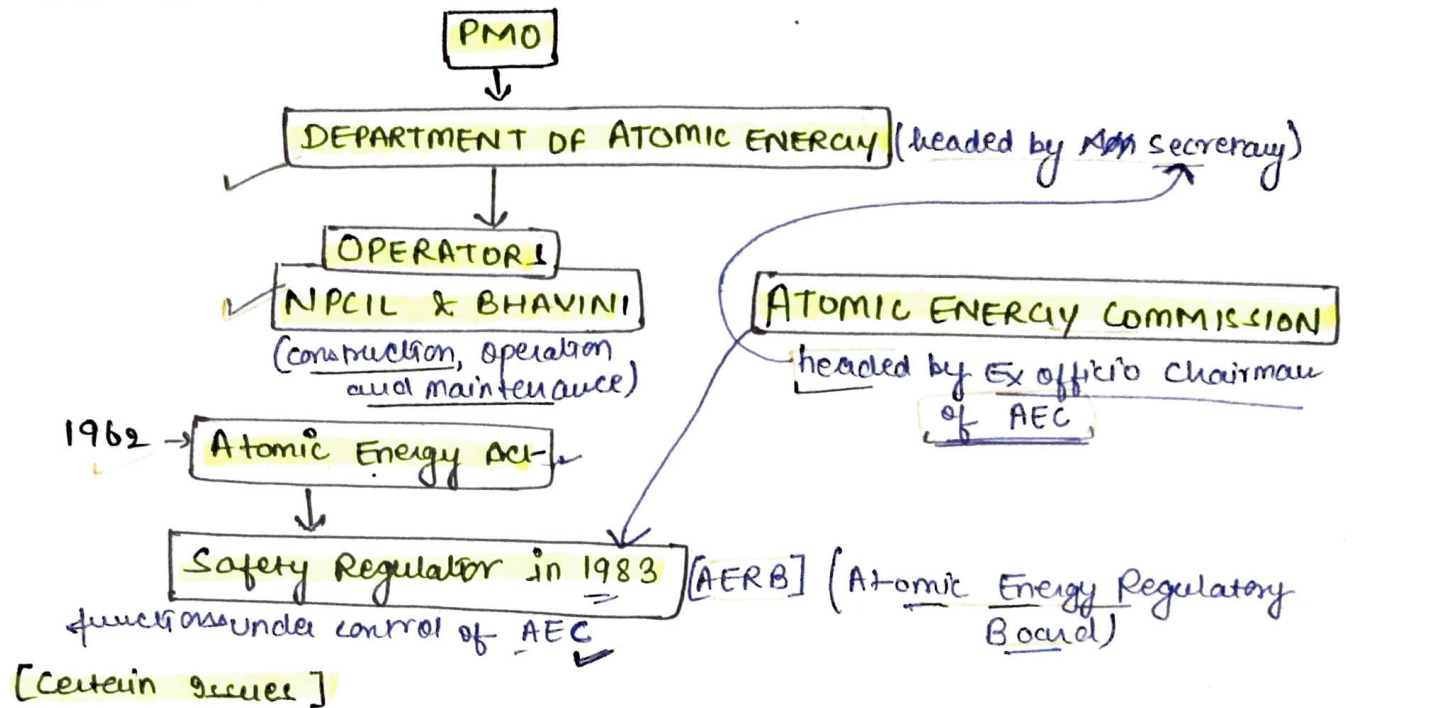 PMO
DEPARTMENT OF ATOMIC ENERGY (headed by secreray)
OPERATORS
NPCIL & BHAVINI
(construction, operation
and maintenance)
ATOMIC ENERGY COMMISSION
headed by Ex officio Chairman
of AEC
1962 → Atomic Energy Act
Safety Regulator in 1983 [AERB] (Atomic Energy Regulatory
Board)
functions under control of AEC
[Certain Issues]